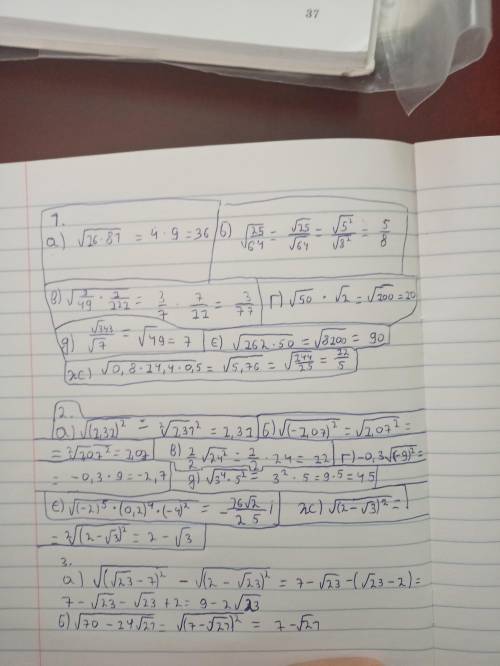 37
1.
а) √26·81 = 4·9=36 б) √25/64 = √25/√64 = √5²/√8² = 5/8
в) √2/49 · 2/222 = 3/7 · 7/22 = 3/77 г) √50 · √2 = √200 = 20
д) √343/√7 = √49 = 7 є) √262·50 = √8200 = 90
ж) √0,8·24,4·0,5 = √5,76 = √244/25 = 22/5
2.
а) √(2,32)² = ²√2,32² = 2,32 б) √(-2,07)² = √2,07² =
= ²√207² = 2,07 в) 2/2 √24² = 2/2 · 24 = 22 г) -0,3·√(-9)² =
= -0,3·9 = -2,7 д) √3⁴·5² = 3²·5 = 9·5 = 45
є) √(-2)⁵·(0,2)⁴·(-4)² = -26√2/25 ; ж) √(2-√3)² =
= ²√(2-√3)² = 2-√3
3.
а) √(√23-7)² - √(2-√23)² = 7-√23-(√23-2) =
7-√23-√23+2 = 9-2√23
б) √70-24√21 = √(7-√21)² = 7-√21